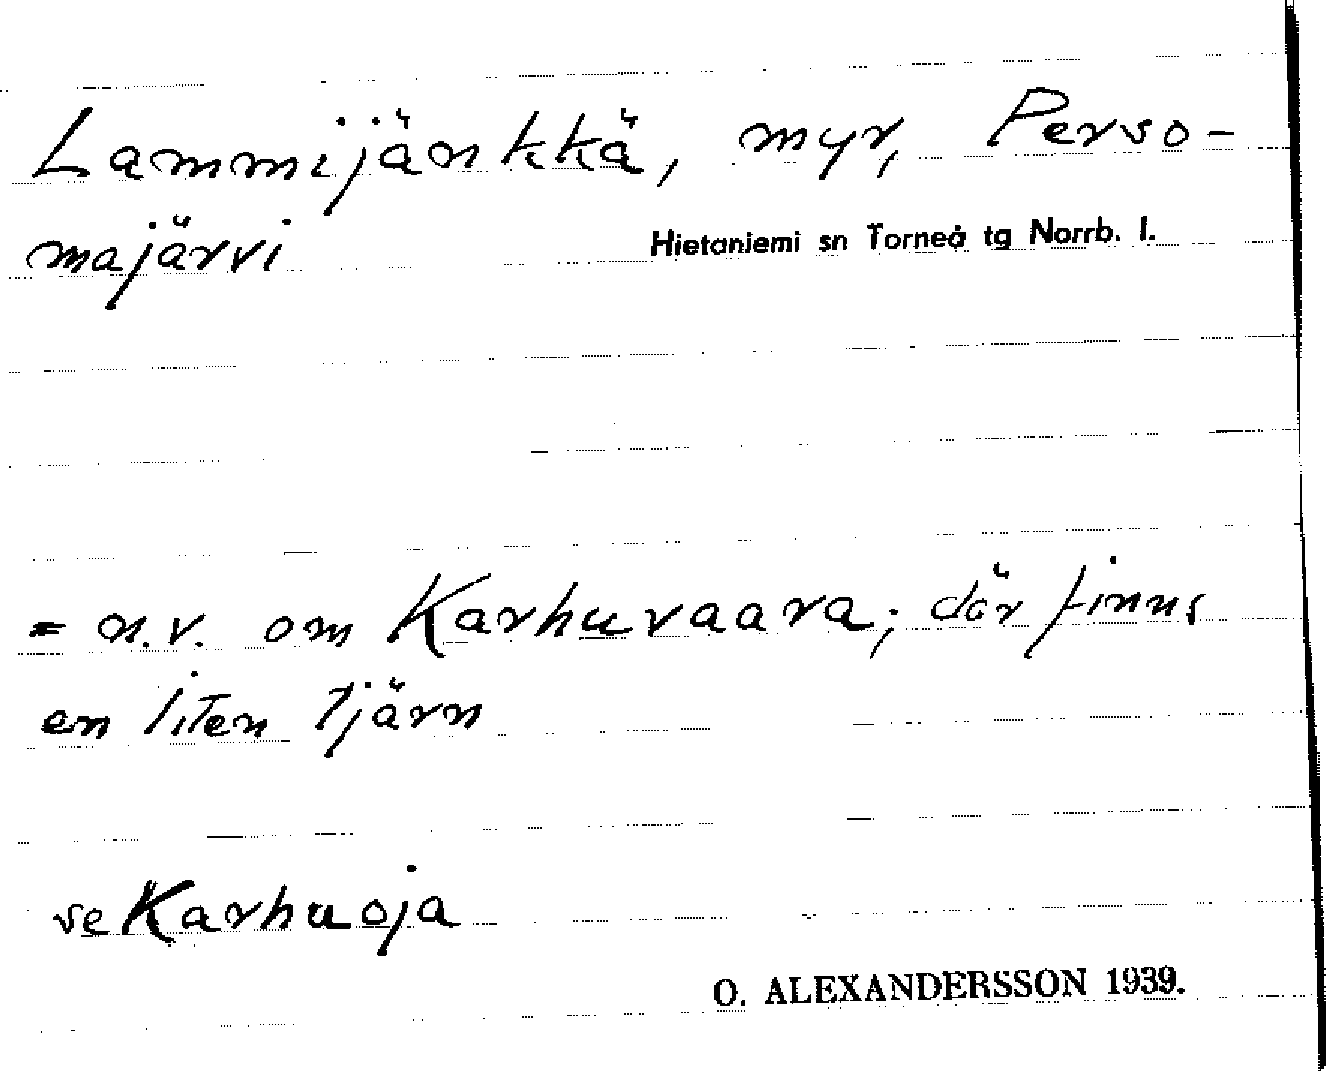 Lammijänkkä, myr, Perso-
majärvi
Hietaniemi sn Torneå tg Norrb. l.
= n.v. om Karhuvaara; där finns
en liten tjärn
se Karhuoja
O. ALEXANDERSSON 1939.